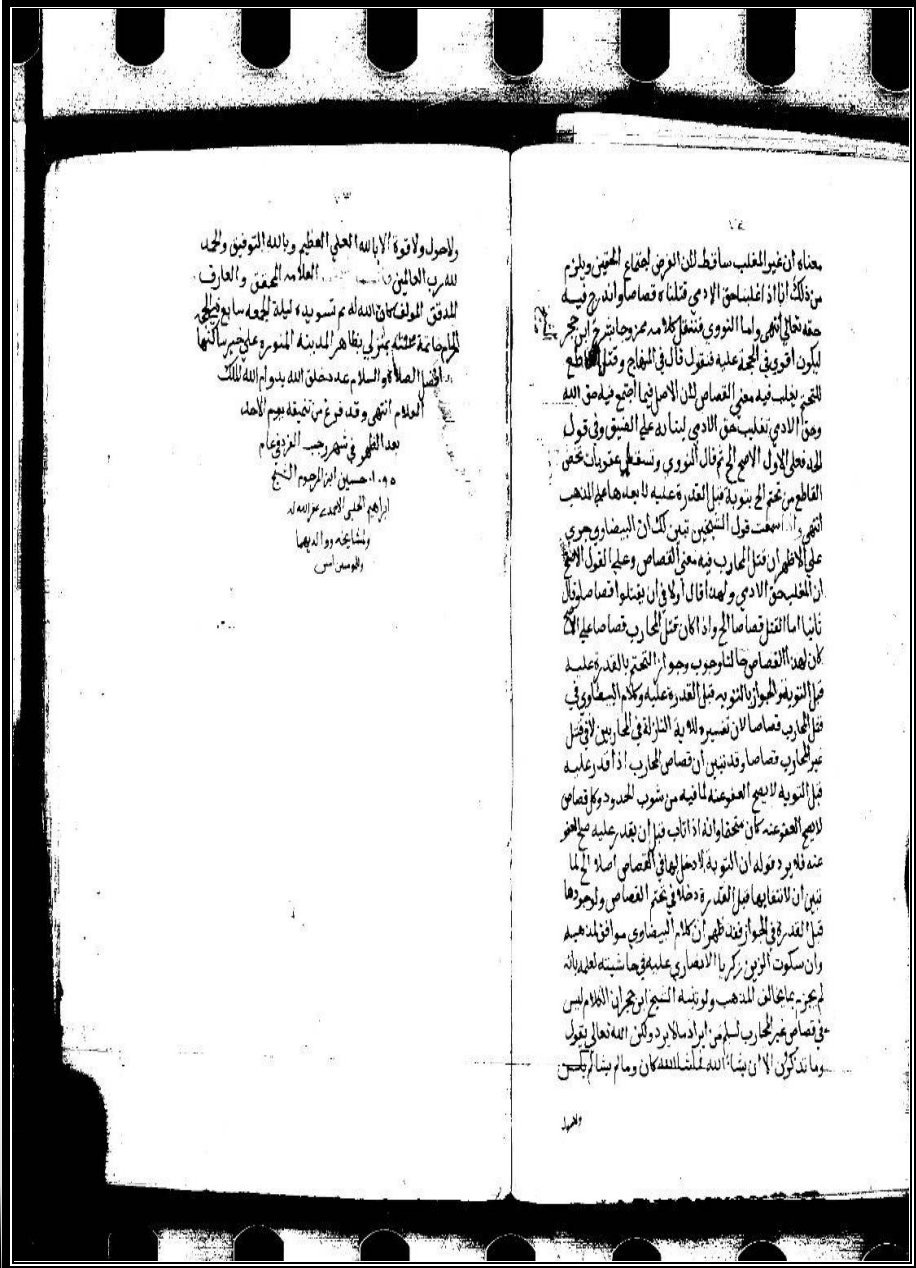 ٧٤
معناه ان غير المغلب ساقط لان الفرض اجتماع الحقين ويلزم
من ذلك انا اذا غلبنا حق الادمي قتلناه قصاصا واندرج فيه
حقه تعالي انتهي واما النووي فننقل كلامه ممزوجا بشرح ابن حجر
ليكون اقوي في الحجة عليه فنقول قال في المنهاج وقتل القاطع
للتحتم يغلب فيه معني القصاص لان الاصل فيما اجتمع فيه حق الله
وحق الادمي تغليب حق الادمي لبنائه علي الضيق وفي قول
الحد فعلي الاول الاصح الخ ثم قال النووي وتسقط عقوبات تخص
القاطع من تحتم الخ بتوبة قبل القدرة عليه لا بعدها علي المذهب
انتهي واذا سمعت قول الشيخين تبين لك ان البيضاوي جري
علي الاظهر ان قتل المحارب فيه معني القصاص وعلي القول الاصح
ان المغلب حق الادمي ولهذا قال اولا في ان يقتلوا قصاصا وقال
ثانيا اما القتل قصاصا الخ واذا كان قتل المحارب قصاصا علي الاصح
كان لهذا القصاص حالتا وجوب وجواز التحتم بالقدرة عليه
قبل التوبة والجواز بالتوبه قبل القدرة عليه وكلام البيضاوي في
قتل المحارب قصاصا لان تفسيره للاية النازلة في المحاربين لا في قتل
غير المحارب قصاصا وقد تبين ان قصاص المحارب اذا قدر عليه
قبل التوبه لا يصح العفو عنه لما فيه من شوب الحدود وكل قصاص
لا يصح العفو عنه كان متحتما وانه اذا تاب قبل ان يقدر عليه صح العفو
عنه فلا يرد قوله ان التوبة لا دخل لها في القصاص اصلا الخ لما
تبين ان لانتفايها قبل القدرة دخلا في تحتم القصاص ولوجودها
قبل القدرة في الجواز فقد ظهر ان كلام البيضاوي موافق لمذهبه
وان سكوت الزين زكريا الانصاري عليه في حاشيته لعلمه بانه
لم يجر بما يخالف المذهب ولو تنبه الشيخ ابن حجر ان الكلام ليس
في قصاص غير المحارب لسلم من ايراد ما لا يرد ولكن الله تعالي يقول
وما تذكرون الا ان يشاء الله فما شاء الله كان وما لم يشا لم يكن
ولا حول
ولا حول ولا قوة الا بالله العلي العظيم وبالله التوفيق والحمد
لله رب العالمين العلامه المحقق والعارف
المدقق المولف كان الله له تم تسويده ليلة الجمعه سابع ذي الحجة
الحرام خاتمة بمنزلي بظاهر المدينه المنوره علي خير ساكنها
افضل الصلاة والسلام عدد خلق الله بدوام الله الملك
العلام انتهي وقد فرغ من تنميقه يوم الاحد
بعد الظهر في شهر رجب الفرد في عام
١٠٩٥ حسين ابن المرحوم الشيخ
ابراهيم الحلبي غفر الله له
ولمشايخه ووالديهما
والمومنين امين